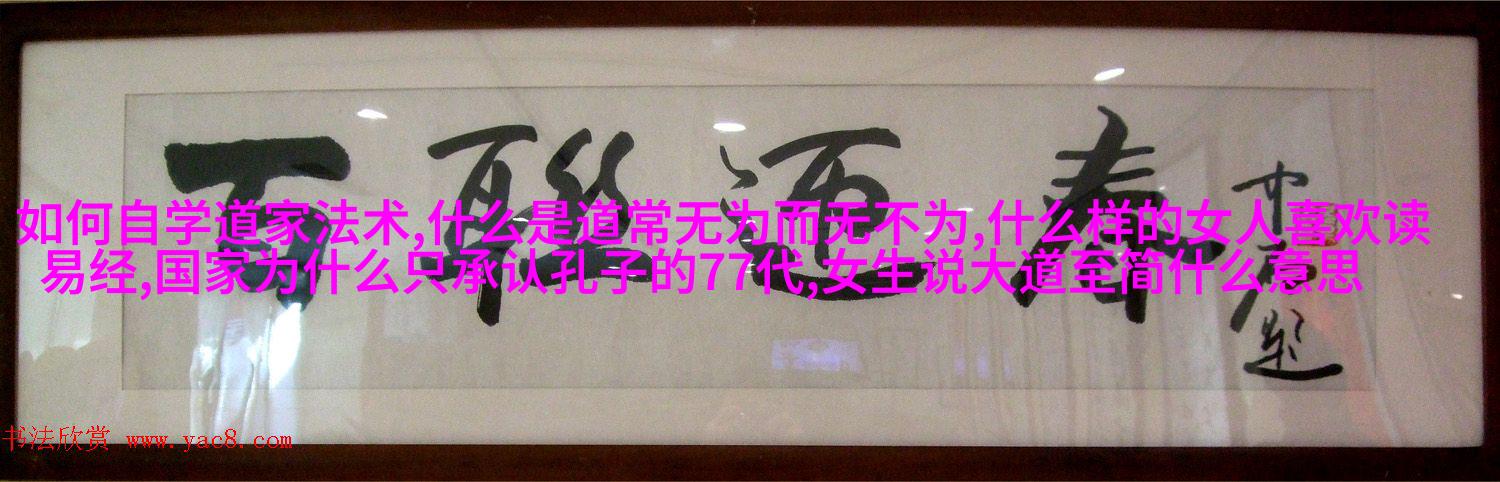 百聯迎春
中石题
如何自学道家法术,什么是道常无为而无不为,什么样的女人喜欢读
易经,国家为什么只承认孔子的77代,女生说大道至简什么意思
书法欣赏 www.yac8.com